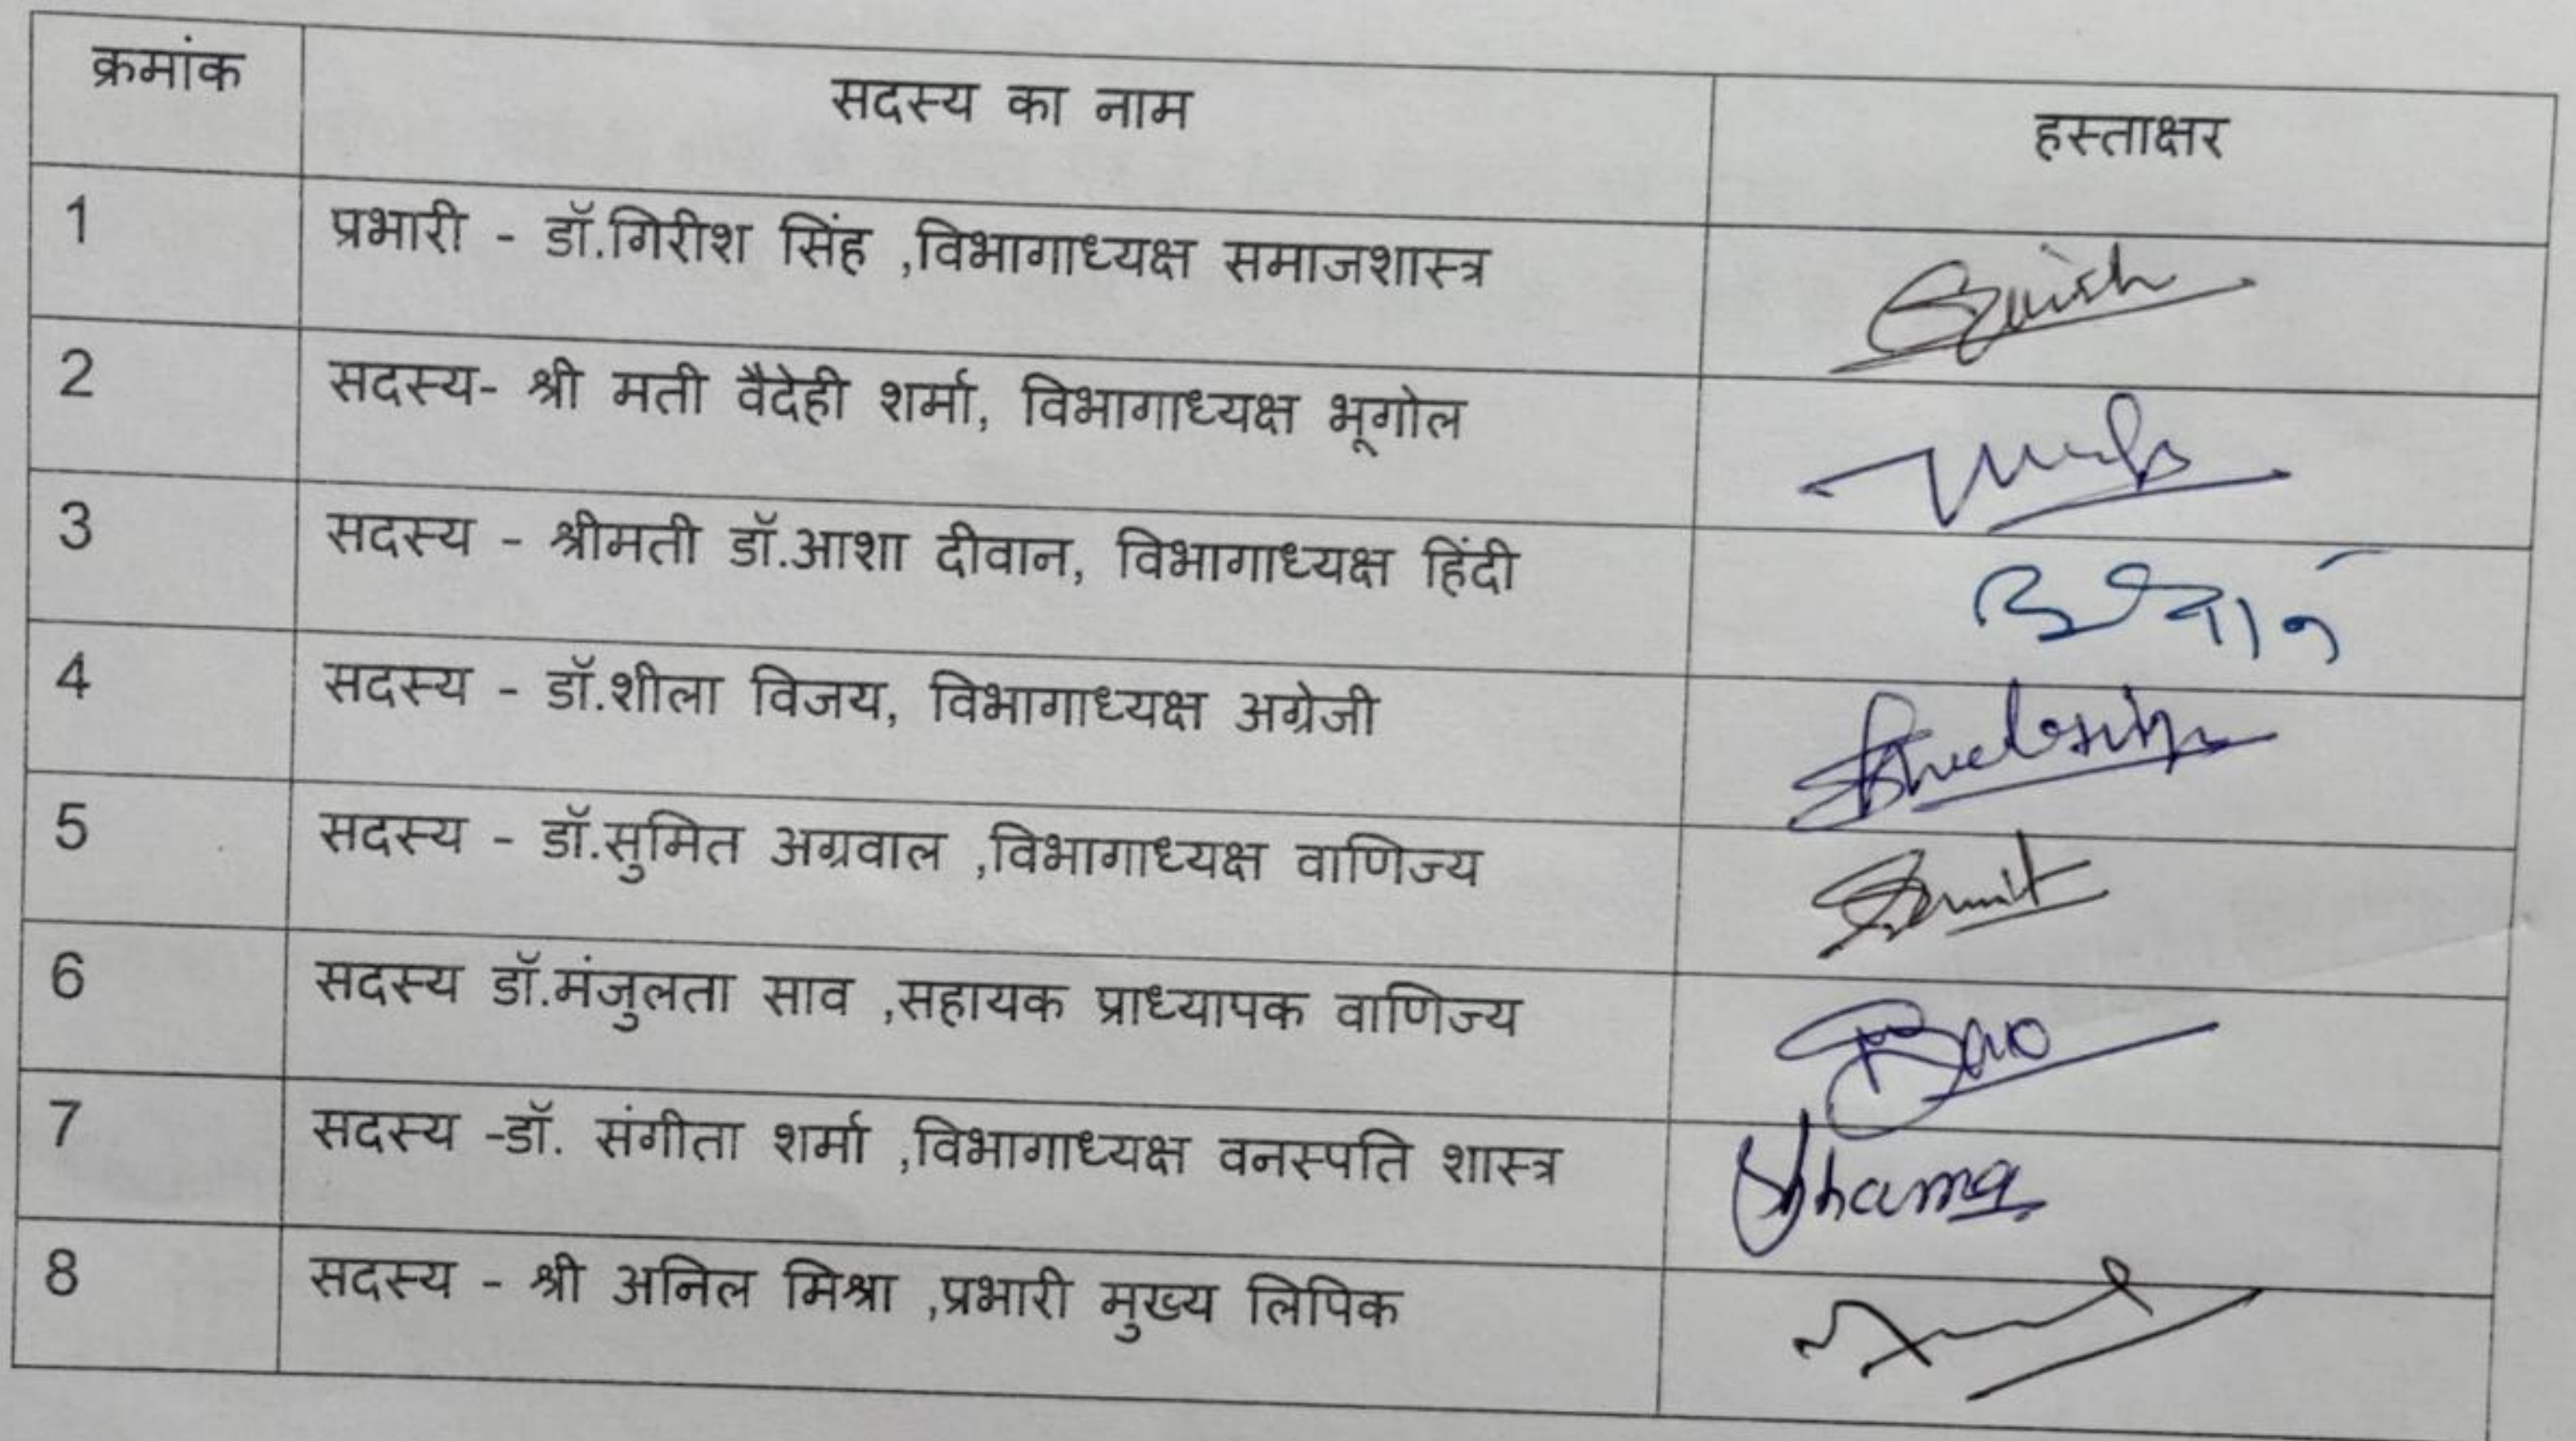 क्रमांक सदस्य का नाम हस्ताक्षर
1 प्रभारी - डॉ.गिरीश सिंह ,विभागाध्यक्ष समाजशास्त्र Girish
2 सदस्य- श्री मती वैदेही शर्मा, विभागाध्यक्ष भूगोल
3 सदस्य - श्रीमती डॉ.आशा दीवान, विभागाध्यक्ष हिंदी
4 सदस्य - डॉ.शीला विजय, विभागाध्यक्ष अग्रेजी
5 सदस्य - डॉ.सुमित अग्रवाल ,विभागाध्यक्ष वाणिज्य Sumit
6 सदस्य डॉ.मंजुलता साव ,सहायक प्राध्यापक वाणिज्य
7 सदस्य -डॉ. संगीता शर्मा ,विभागाध्यक्ष वनस्पति शास्त्र
8 सदस्य - श्री अनिल मिश्रा ,प्रभारी मुख्य लिपिक